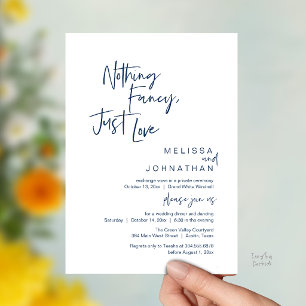 Nothing
Fancy,
Just Love
MELISSA
and
JOHNATHAN
exchange vows in a private ceremony
October 13, 20xx |
please join us
for a wedding dinner and dancing
Saturday | October 14, 20xx | 6:30 in the evening
The Green Valley Courtyard
384 Main West Street | Austin, Texas
Regrets only to Tweaha at 304.566.6870
before August 1, 20xx